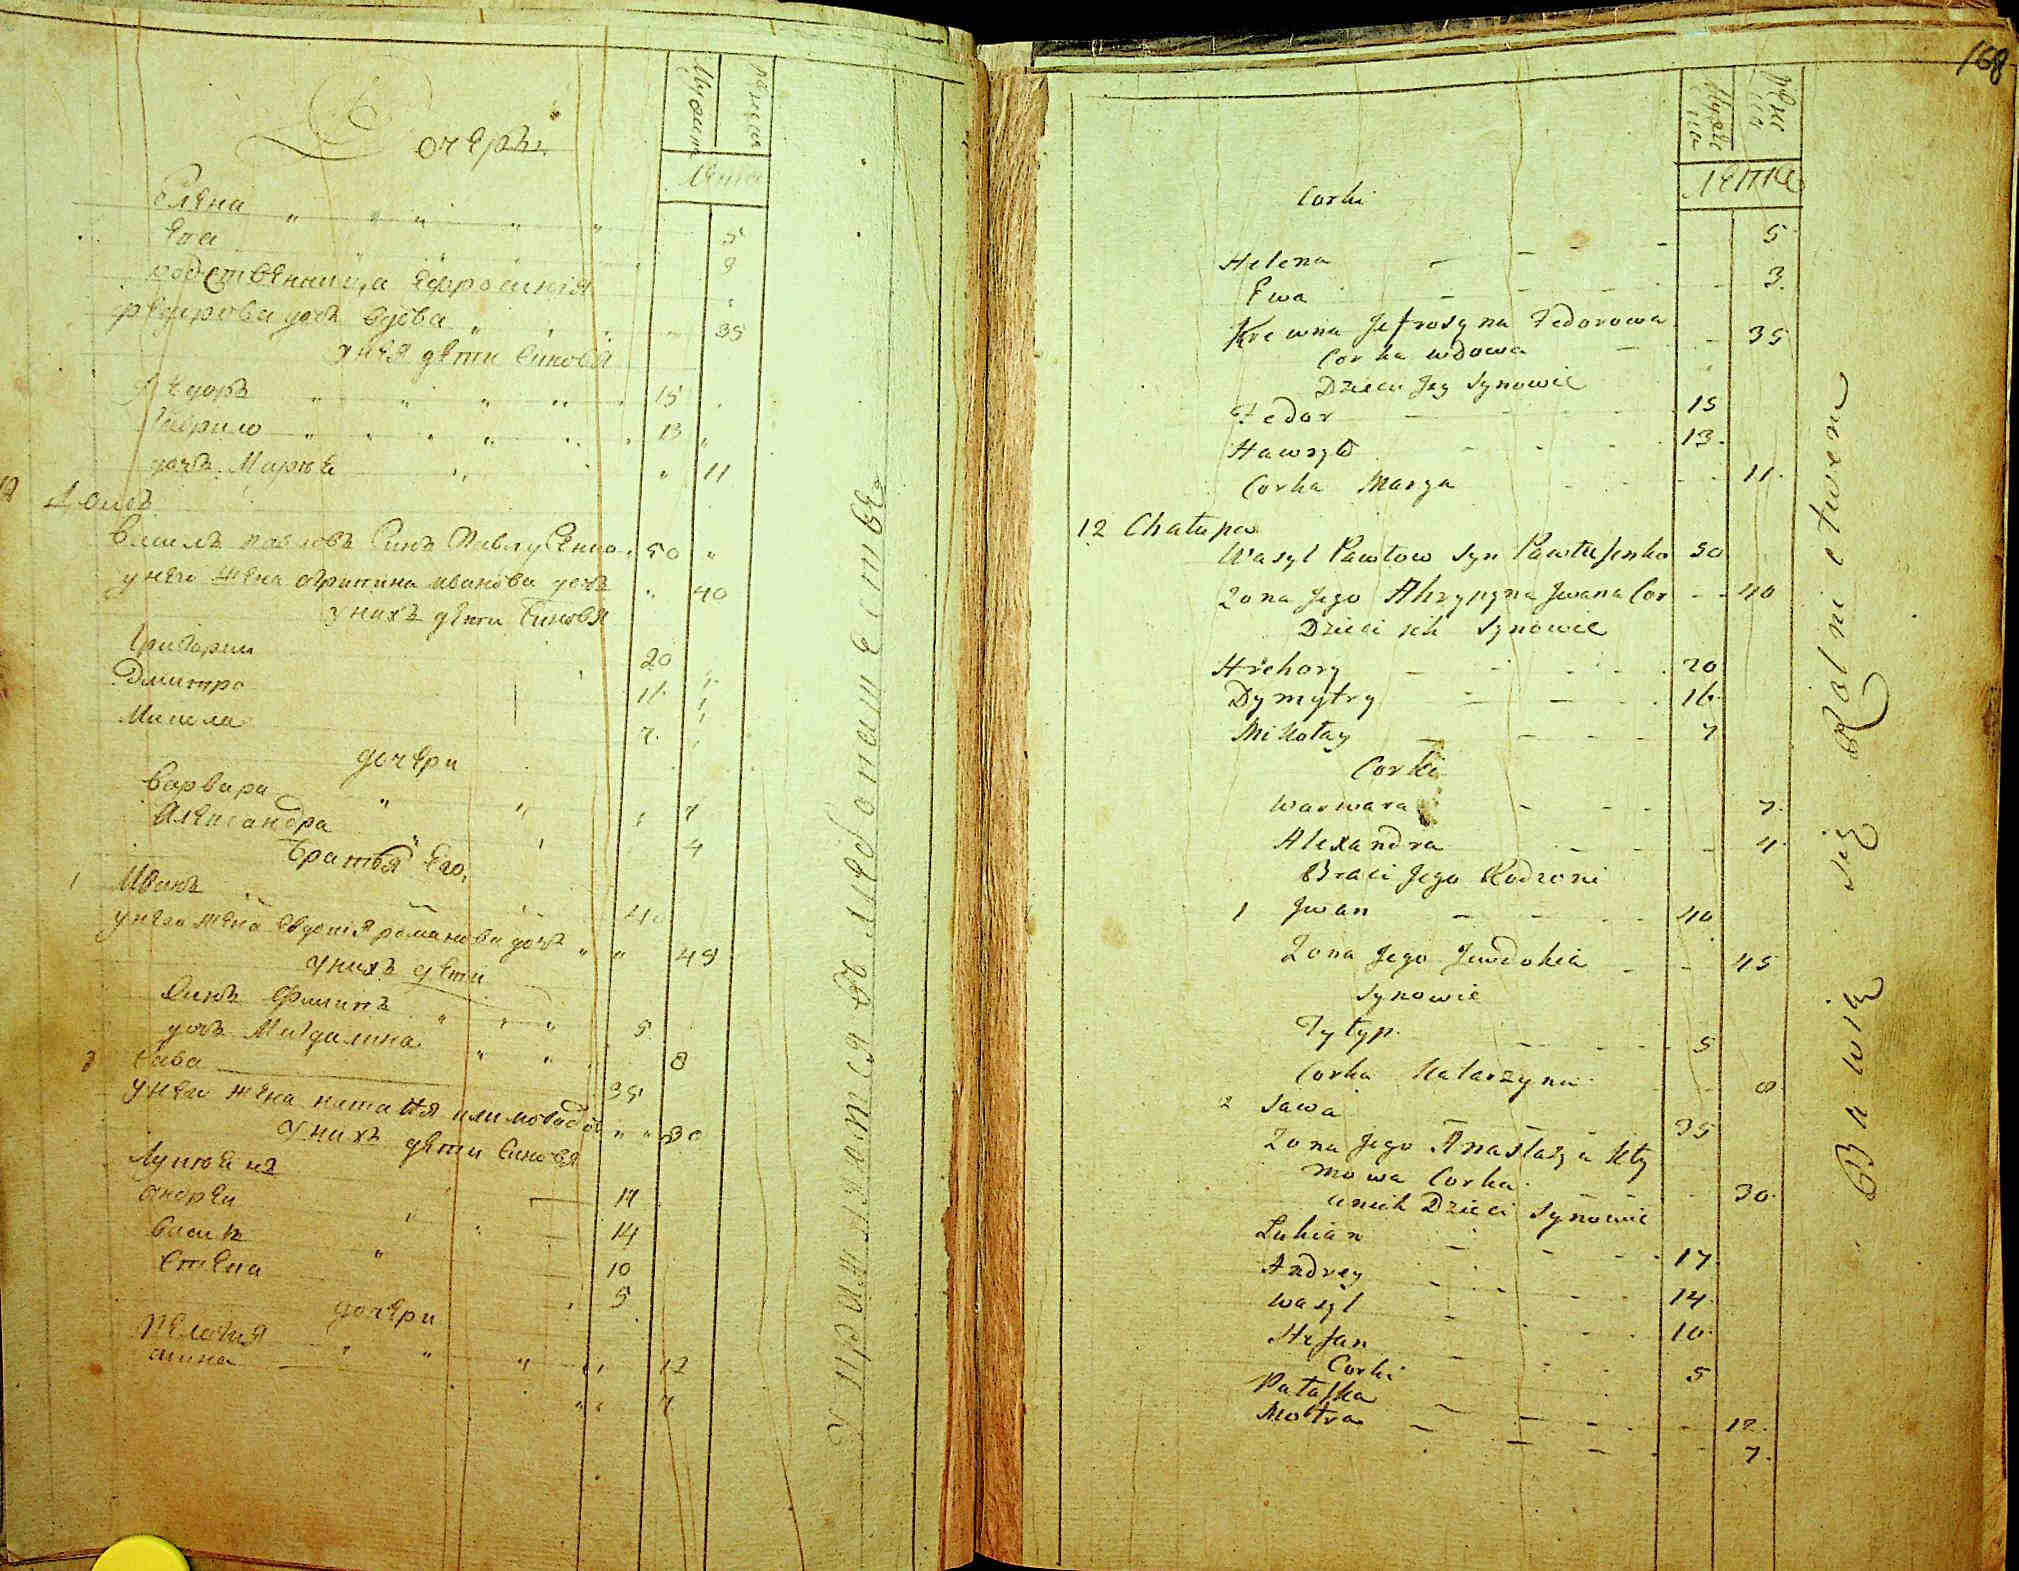 Мужеи
женси
лета
Дочери
Елена " " " " " 5
Ева 3
родственница Ефросиния
Федорова дочь вдова " " " " 35
у нея дети синовя
Федоръ " " " " " 15
Гаврило " " " " " " 13 "
дочь Маря " 11
12 Домъ
Василь Павловъ Синъ Павлусенко 50 "
у него жена Агрипина Иванова дочь " 40
у нихъ дети Синовя
Григории 20
Дмитро 16
Микола 7
дочери
Варвара " " 7
Александра 4
Братья Его
1 Иванъ 40
у него жена Евдокия Романова дочь " " 45
у нихъ дети
Синъ Филипъ " " " 5
дочь Магдалина " " 8
2 Сава 35
у него жена Наталия Климова до " " 30
у нихъ дети Синовя
Лукиянъ 17
Андреи 14
Васил 10
Стефан 5
дочери
Пелагия " " " 12
" " 7
упражняются въ хлебопашестве
168
Мужес
ка
Женс
ка
Лета
Corki
Helena - - - - 5
Ewa - - - - 3.
Krewna Jefrosyna Fedorowa
Corka wdowa - - 35
Dzieci Jey Synowie
Fedor - - - - 15
Hawryło - - - - 13.
Corka Marya - - - - 11.
12 Chałupa
Wasyl Pawłow syn Pawłusenko 50
Zona Jego Ahrypyna Jwana Cor - - 40
Dzieci ich Synowie
Hrehory - - - - 20
Dymytry - - - 16.
Mikołay - - - - 7
Corki
Warwara - - - 7.
Alexandra - - - 4.
Braci Jego Rodzoni
1 Jwan - - - - - 40
Zona Jego Jewdokia - - 45
Synowie
Fylyp. - - - - 5
Corka Katarzyna - - 8.
2 Sawa 35
Zona Jego Anastazya Kly
mowa Corka. - 30.
u nich Dzieci Synowie
Lukian - - - - 17
Andrey - - - - 14.
Wasyl - - - - 10.
Stefan - - - 5
Corki
Palaska - - - - 12.
Motra - - - - 7.
Bawią się Rolnictwem